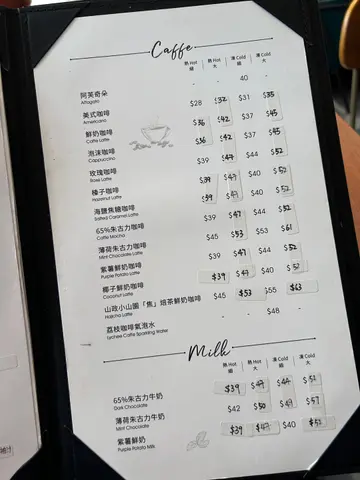 Caffe
熱 Hot 細
熱 Hot 大
凍 Cold 細
凍 Cold 大
阿芙奇朵 - - 40 -
Affogato
美式咖啡 $28 $32 $31 $35
Americano
鮮奶咖啡 $36 $42 $37 $45
Caffe Latte
泡沫咖啡 $36 $42 $37 $45
Cappuccino
玫瑰咖啡 $39 $47 $44 $52
Rose Latte
榛子咖啡 $39 $47 $40 $52
Hazelnut Latte
海鹽焦糖咖啡 $39 $47 $40 $52
Salted Caramel Latte
65%朱古力咖啡 $39 $47 $44 $52
Caffe Mocha
薄荷朱古力咖啡 $45 $53 $61
Mint Chocolate Latte
紫薯鮮奶咖啡 $39 $47 $44 $52
Purple Potato Latte
椰子鮮奶咖啡 $39 $47 $40 $52
Coconut Latte
山政小山園「焦」焙茶鮮奶咖啡 $45 $53 $55 $63
Hojicha Latte
荔枝咖啡氣泡水 - - $48 -
Lychee Caffe Sparkling Water
Milk
熱 Hot 細
熱 Hot 大
凍 Cold 細
凍 Cold 大
65%朱古力牛奶 $39 $47 $44 $52
Dark Chocolate
薄荷朱古力牛奶 $42 $50 $47 $57
Mint Chocolate
紫薯鮮奶 $39 $47 $40 $52
Purple Potato Milk